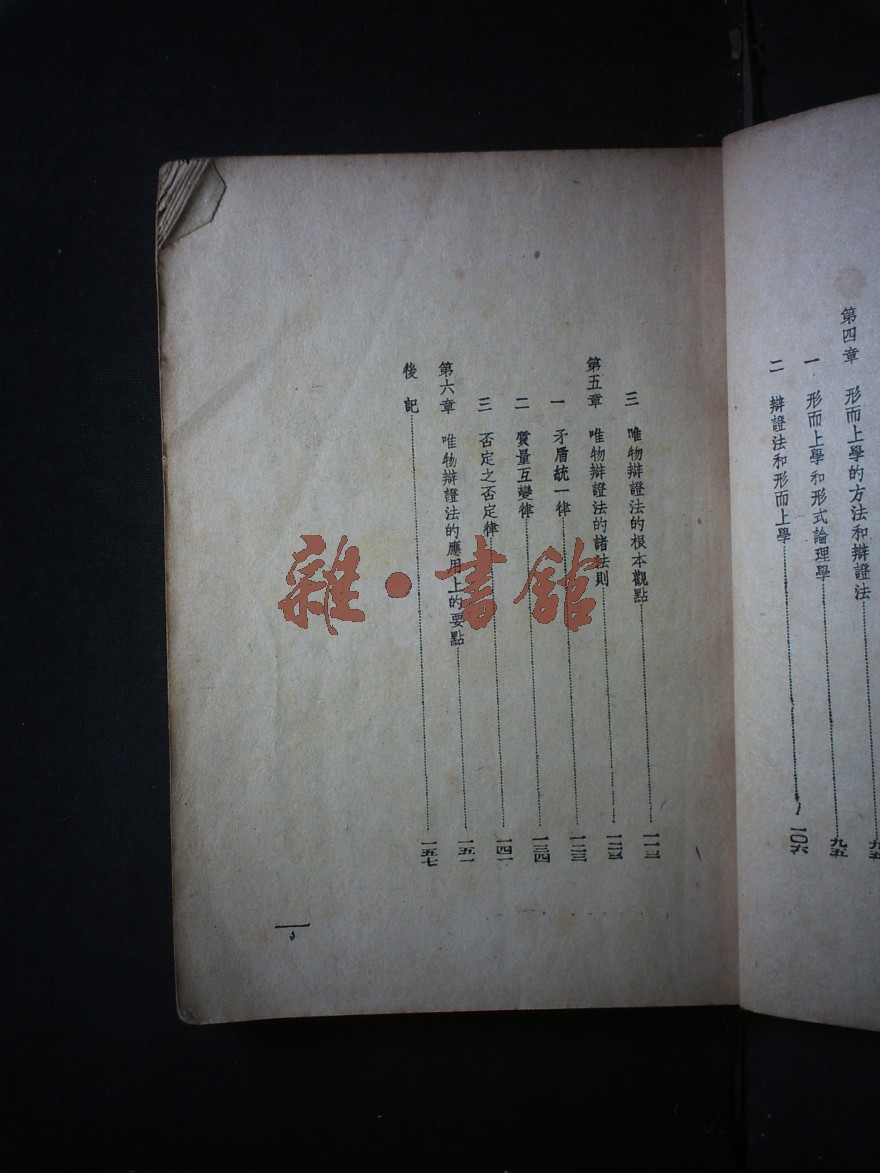 第四章 形而上學的方法和辯證法……九五
一 形而上學和形式論理學……九五
二 辯證法和形而上學……一〇六
三 唯物辯證法的根本觀點……一一三
第五章 唯物辯證法的諸法則……一二三
一 矛盾統一律……一二三
二 質量互變律……一三四
三 否定之否定律……一四一
第六章 唯物辯證法的應用上的要點……一五一
後記……一五七
雜·書館